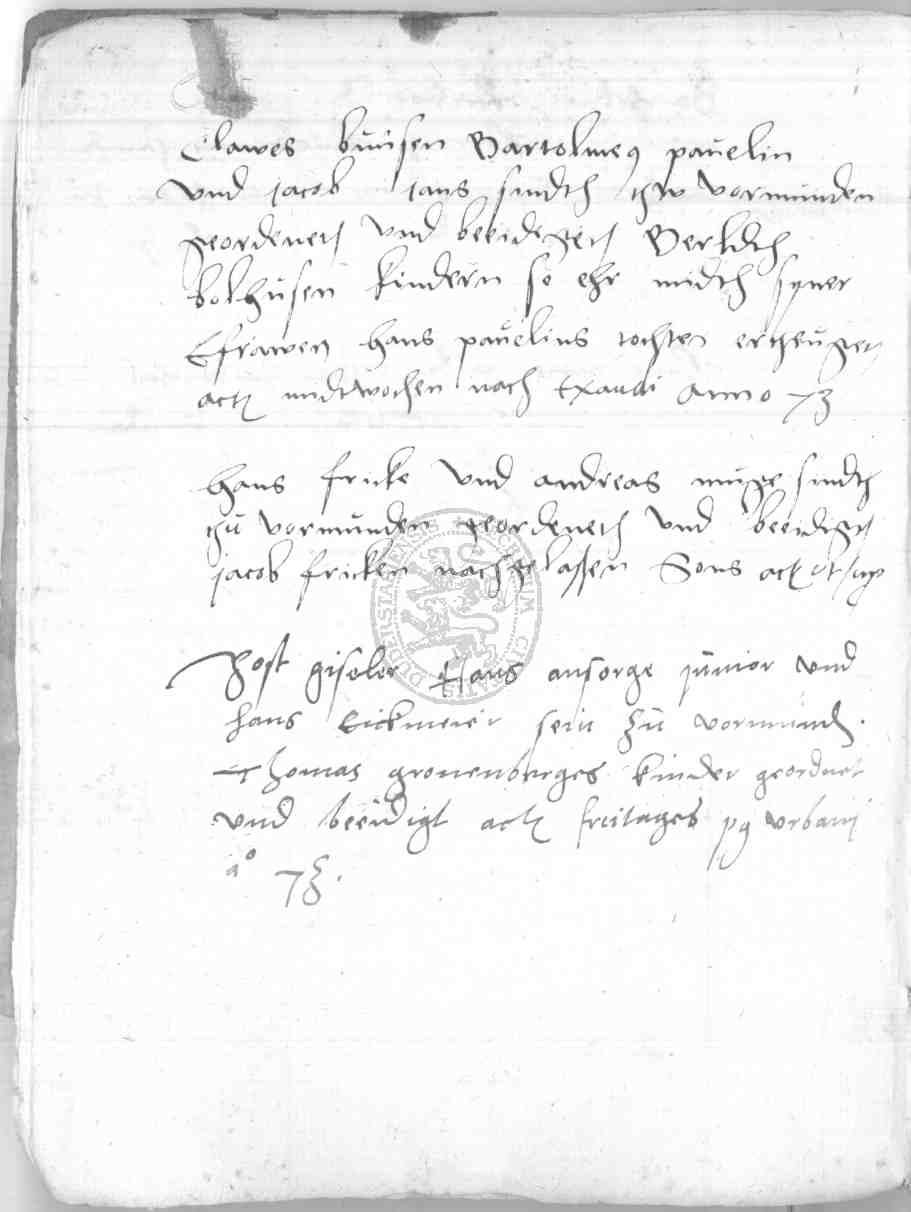 Clawes buusen Bartolmeg pauelin
vnd jacob jans sindth thw vormunden
geordeneth vnd beeidigeth Berldth
Bolhusen kindern so ehr midth syner
Efrawen Hans pauelins tochter ertzeuget
act midtwochen nach Exaudi Anno 73
Hans fricke vnd andreas muge sindth
thu vormunden geordeneth vnd beeidigt
jacob fricken nachgelassen Sons act ut sup
Jost giseler Hans ansorge junior vnd
hans Eickmeier sein zu vormund.
Thomas gronenberges kinder geordnet
vnd beeidigt act freitages pg vrbani
a° 73.
DUDERSTATENSIS CIVITATIS